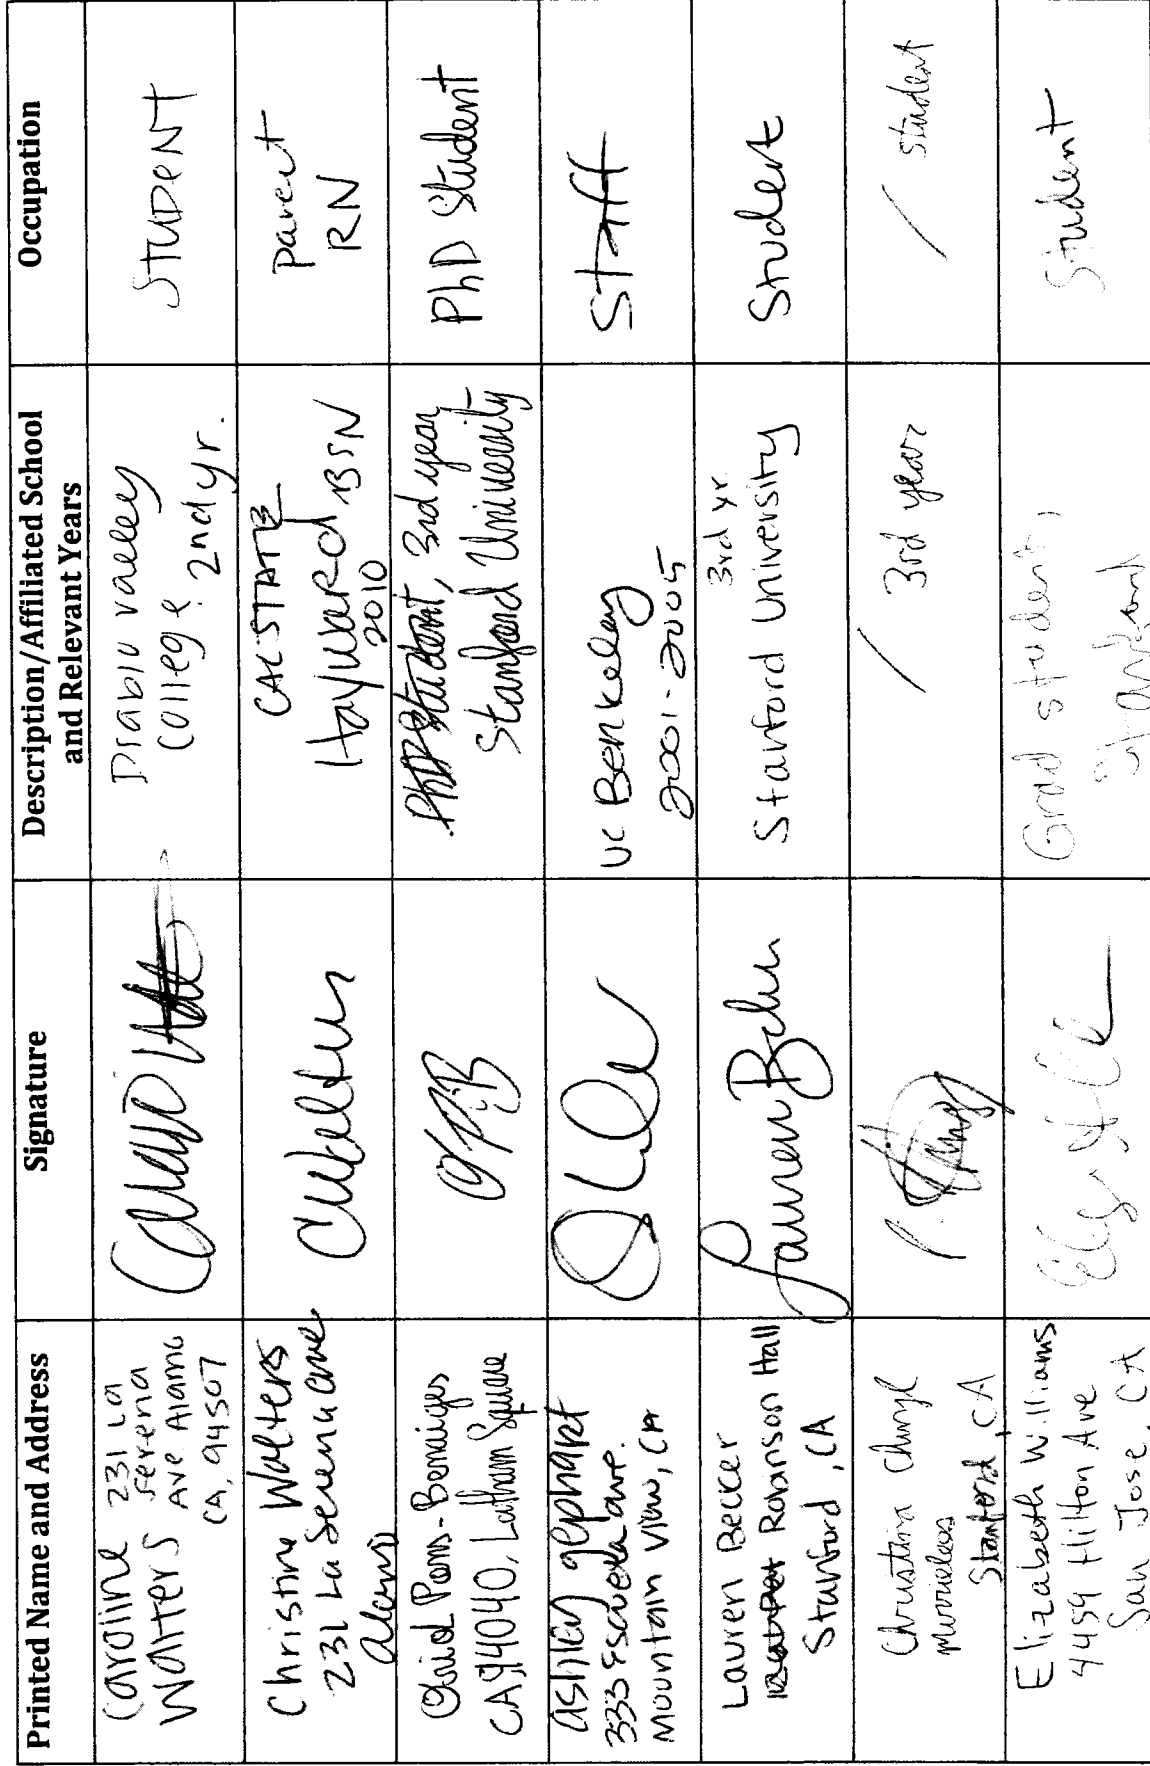 Printed Name and Address
Signature
Description/Affiliated School
and Relevant Years
Occupation
Caroline 231 La
Walters Serena
Ave Alamo
CA, 94507
Diablo Valley
College. 2nd yr.
STUDENT
Christine Walters
231 La Serena ave
alamo
CAL STATE
Hayward BSN
2010
parent
RN
CA 94040, Latham Square
PhD Student, 3rd year
Stanford University
PhD Student
Ashley gephart
333 Escuela ave.
Mountain View, CA
UC Berkeley
2001-2005
Staff
Lauren Becker
Robinson Hall
Stanford, CA
Lauren Becker
3rd yr
Stanford University
Student
Stanford, CA
/ 3rd year
/ student
Elizabeth Williams
4459 Hilton Ave
San Jose, CA
Grad student,
Stanford
Student